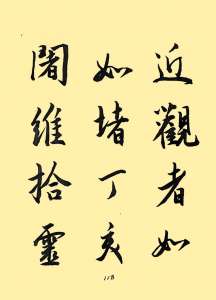 近觀者如
如堵丁亥
闍維拾靈
118